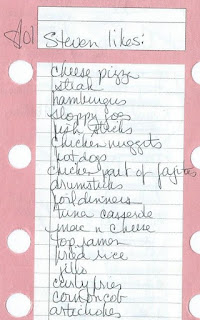 Steven likes:
cheese pizza
steak
hamburgers
sloppy joes
fish sticks
chicken nuggets
hot dogs
chicken part of fajitas
drumsticks
foil dinners
tuna casserole
mac n cheese
top ramen
fried rice
jello
curly fries
corn on cob
artichokes